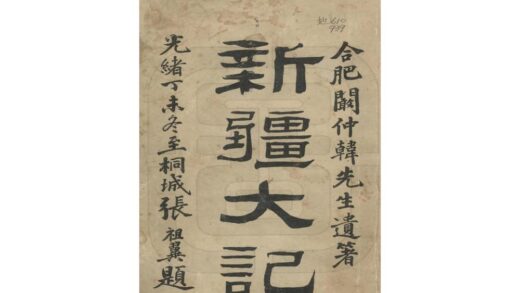 合肥闞仲韓先生遺箸
新疆大記
光緒丁未冬至桐城張祖翼題